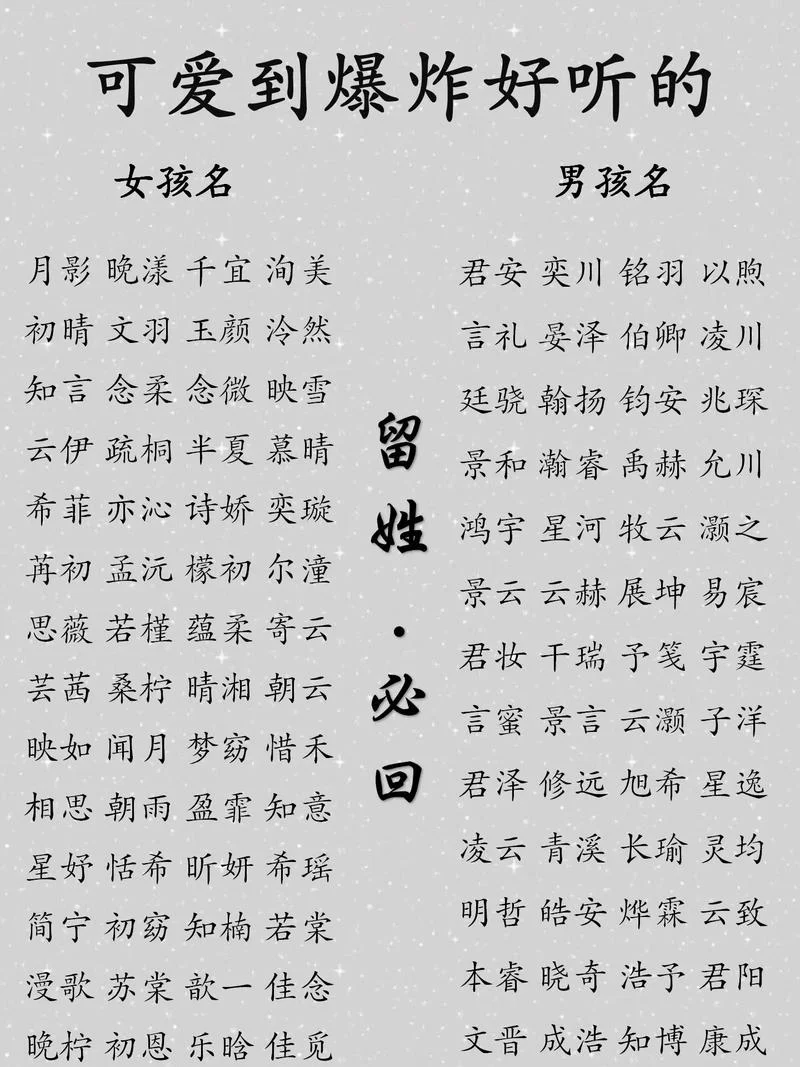 可爱到爆炸好听的
女孩名
月影 晚漾 千宜 洵美
初晴 文羽 玉颜 泠然
知言 念柔 念微 映雪
云伊 疏桐 半夏 慕晴
希菲 亦沁 诗娇 奕璇
苒初 孟沅 檬初 尔潼
思薇 若槿 蕴柔 寄云
芸茜 桑柠 晴湘 朝云
映如 闻月 梦窈 惜禾
相思 朝雨 盈霏 知意
星妤 恬希 昕妍 希瑶
简宁 初窈 知楠 若棠
漫歌 苏棠 歆一 佳念
晚柠 初恩 乐晗 佳觅
留姓·必回
男孩名
君安 奕川 铭羽 以煦
言礼 晏泽 伯卿 凌川
廷骁 翰扬 钧安 兆琛
景和 瀚睿 禹赫 允川
鸿宇 星河 牧云 灏之
景云 云赫 展坤 易宸
君妆 干瑞 予笺 宇霆
言蜜 景言 云灏 子洋
君泽 修远 旭希 星逸
凌云 青溪 长瑜 灵均
明哲 皓安 烨霖 云致
本睿 晓奇 浩予 君阳
文晋 成浩 知博 康成